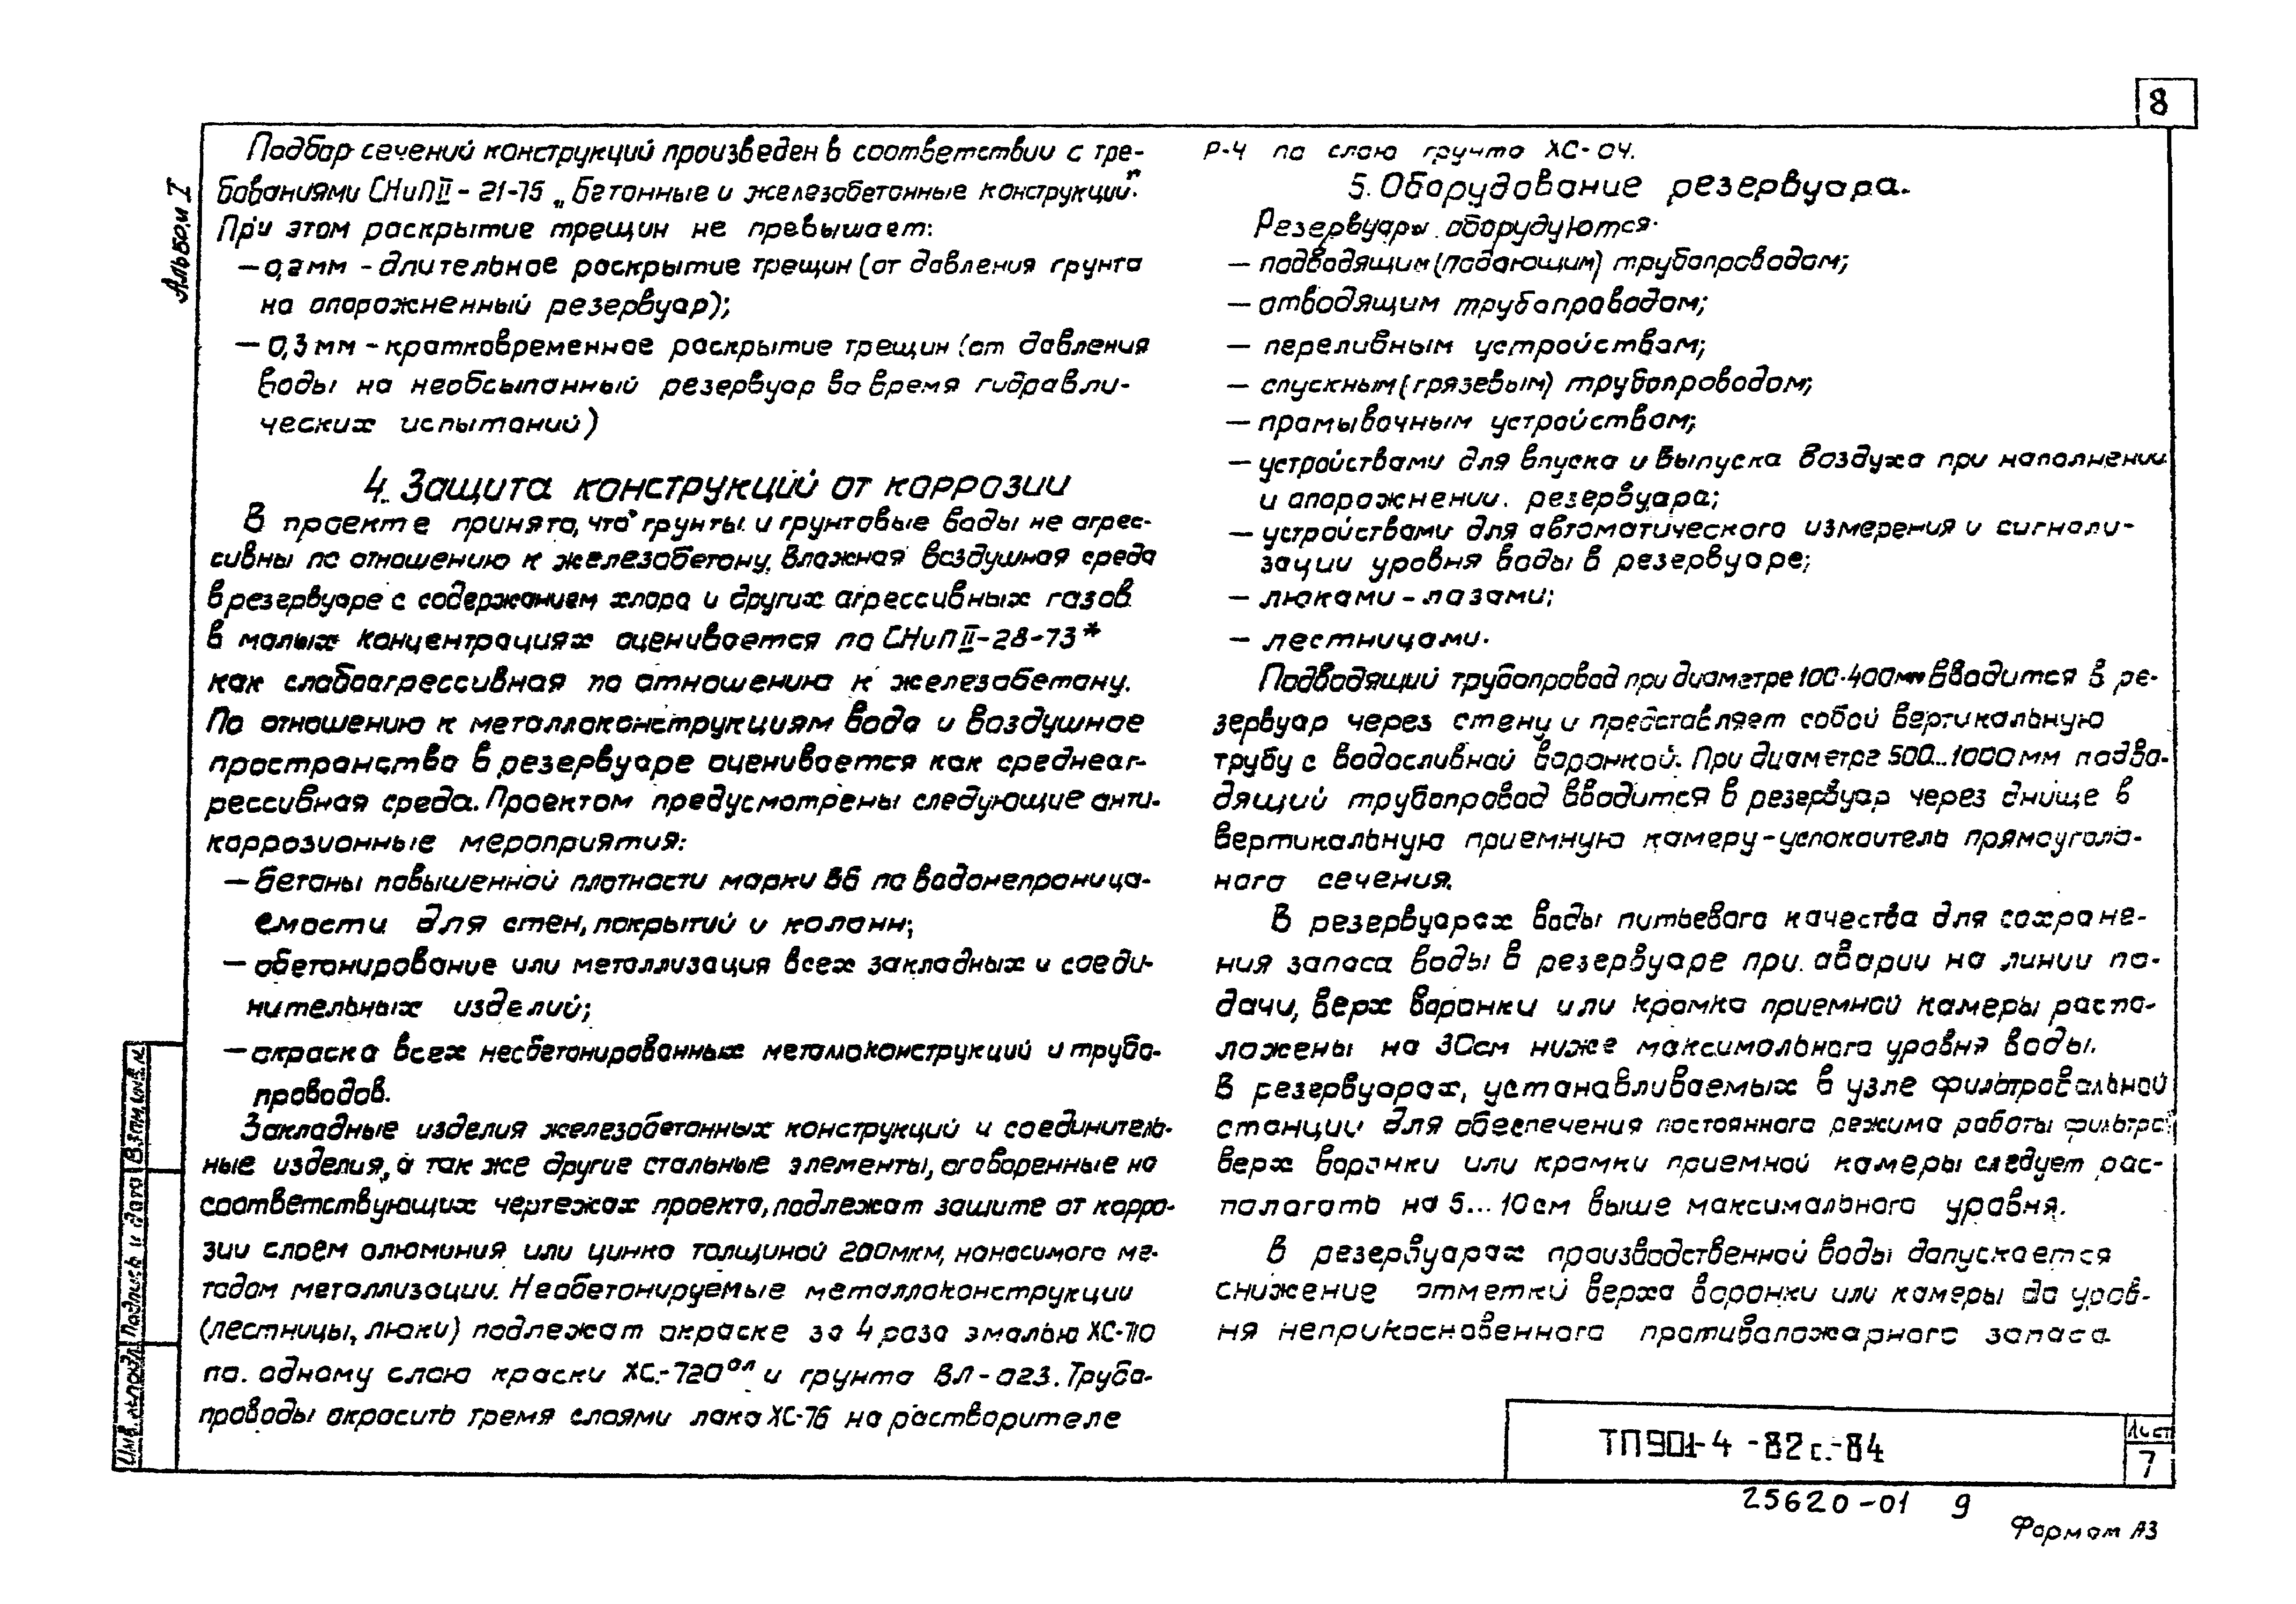 8
Альбом I
Подбор сечений конструкций произведен в соответствии с тре-
бованиями СНиП II-21-75 „Бетонные и железобетонные конструкции".
При этом раскрытие трещин не превышает:
— 0,2мм - длительное раскрытие трещин (от давления грунта
на опорожненный резервуар);
— 0,3мм - кратковременное раскрытие трещин (от давления
воды на необсыпанный резервуар во время гидравли-
ческих испытаний)
4. Защита конструкций от коррозии
В проекте принято, что грунты и грунтовые воды не агрес-
сивны по отношению к железобетону. Влажная воздушная среда
в резервуаре с содержанием хлора и других агрессивных газов
в малых концентрациях оценивается по СНиП II-28-73*
как слабоагрессивная по отношению к железобетону.
По отношению к металлоконструкциям вода и воздушное
пространство в резервуаре оценивается как среднеаг-
рессивная среда. Проектом предусмотрены следующие анти-
коррозионные мероприятия:
— бетоны повышенной плотности марки В6 по водонепроница-
емости для стен, покрытий и колонн;
— обетонирование или металлизация всех закладных и соеди-
нительных изделий;
— окраска всех несбетонированных металлоконструкций и трубо-
проводов.
Закладные изделия железобетонных конструкций и соединитель-
ные изделия, а так же другие стальные элементы, оговоренные на
соответствующих чертежах проекта, подлежат защите от корро-
зии слоем алюминия или цинка толщиной 200мкм, наносимого ме-
тодом металлизации. Необетонируемые металлоконструкции
(лестницы, люки) подлежат окраске за 4 раза эмалью ХС-710
по одному слою краски ХС-720ал и грунта ВЛ-023. Трубо-
проводы окрасить тремя слоями лака ХС-76 на растворителе
Р-4 по слою грунта ХС-04.
5. Оборудование резервуара.
Резервуары оборудуются:
— подводящим (подающим) трубопроводом;
— отводящим трубопроводом;
— переливным устройством;
— спускным (грязевым) трубопроводом;
— промывочным устройством;
— устройствами для впуска и выпуска воздуха при наполнении
и опорожнении резервуара;
— устройствами для автоматического измерения и сигнали-
зации уровня воды в резервуаре;
— люками-лазами;
— лестницами.
Подводящий трубопровод при диаметре 100-400мм вводится в ре-
зервуар через стену и представляет собой вертикальную
трубу с водосливной воронкой. При диаметре 500...1000мм подво-
дящий трубопровод вводится в резервуар через днище в
вертикальную приемную камеру-успокоитель прямоуголь-
ного сечения.
В резервуарах воды питьевого качества для сохране-
ния запаса воды в резервуаре при аварии на линии по-
дачи, верх воронки или кромка приемной камеры распо-
ложены на 30см ниже максимального уровня воды.
В резервуарах, устанавливаемых в узле фильтровальной
станции для обеспечения постоянного режима работы фильтров
верх воронки или кромки приемной камеры следует рас-
полагать на 5...10см выше максимального уровня.
В резервуарах производственной воды допускается
снижение отметки верха воронки или камеры до уров-
ня неприкосновенного противопожарного запаса
Взам. инв. №
Подпись и дата
Инв. № подл.
ТП 901-4-82с.-84
Лист
7
25620-01 9
Формат А3